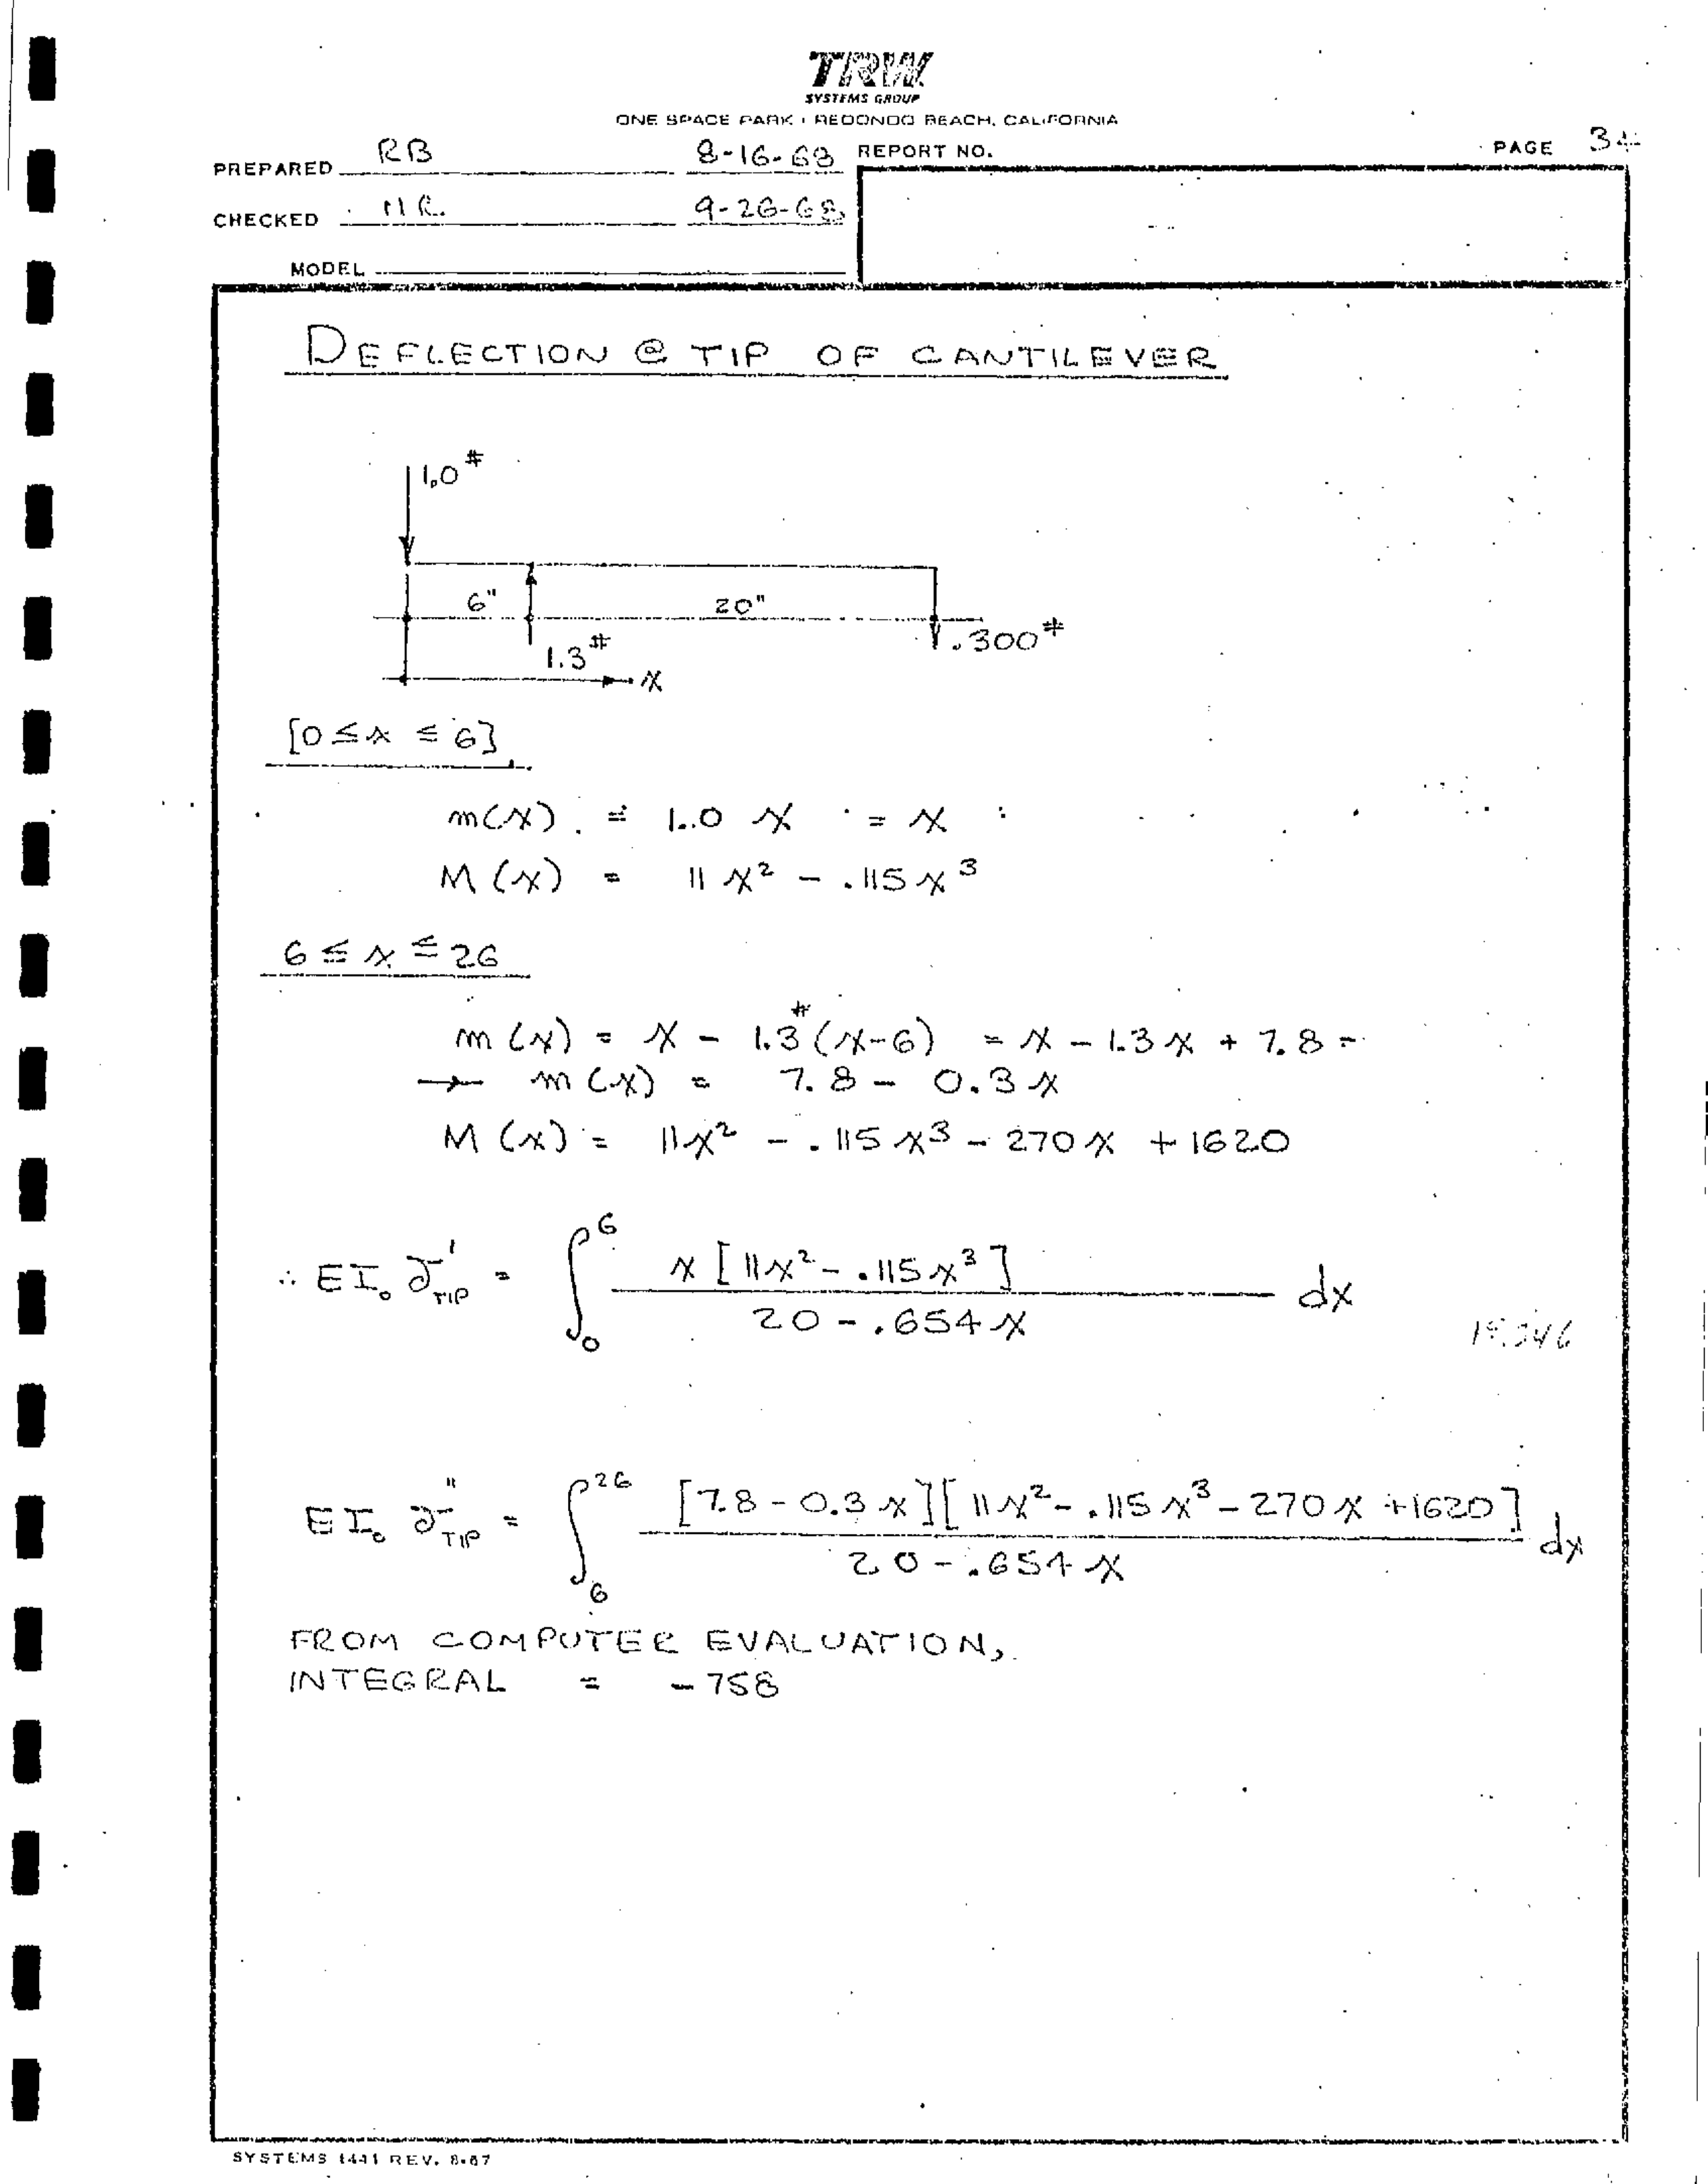 TRW
SYSTEMS GROUP
ONE SPACE PARK • REDONDO BEACH, CALIFORNIA
PREPARED RB 8-16-68 REPORT NO. PAGE 34
CHECKED 9-26-68
MODEL
DEFLECTION @ TIP OF CANTILEVER
1.0#
6" 20"
.300#
1.3#
x
[0 ≤ x ≤ 6]
m(x) = 1.0 x = x
M(x) = 11x² - .115x³
6 ≤ x ≤ 26
m(x) = x - 1.3#(x-6) = x - 1.3x + 7.8 =
→ m(x) = 7.8 - 0.3x
M(x) = 11x² - .115x³ - 270x + 1620
∴ EI₀ δ'TIP = ∫₀⁶ x[11x² - .115x³] / 20 - .654x dx
EI₀ δ"TIP = ∫₆²⁶ [7.8 - 0.3x][11x² - .115x³ - 270x + 1620] / 20 - .654x dx
FROM COMPUTER EVALUATION,
INTEGRAL = -758
SYSTEMS 1441 REV. 8-67